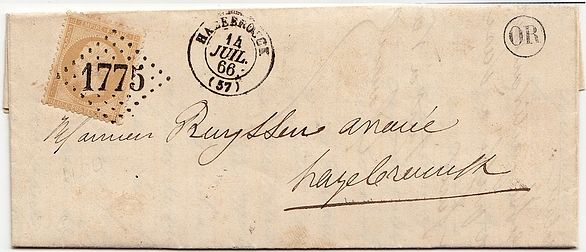 1775
HAZEBROUCK
14
JUIL.
66
(57)
OR
Monsieur Ruyssen avoué
hazebrouck